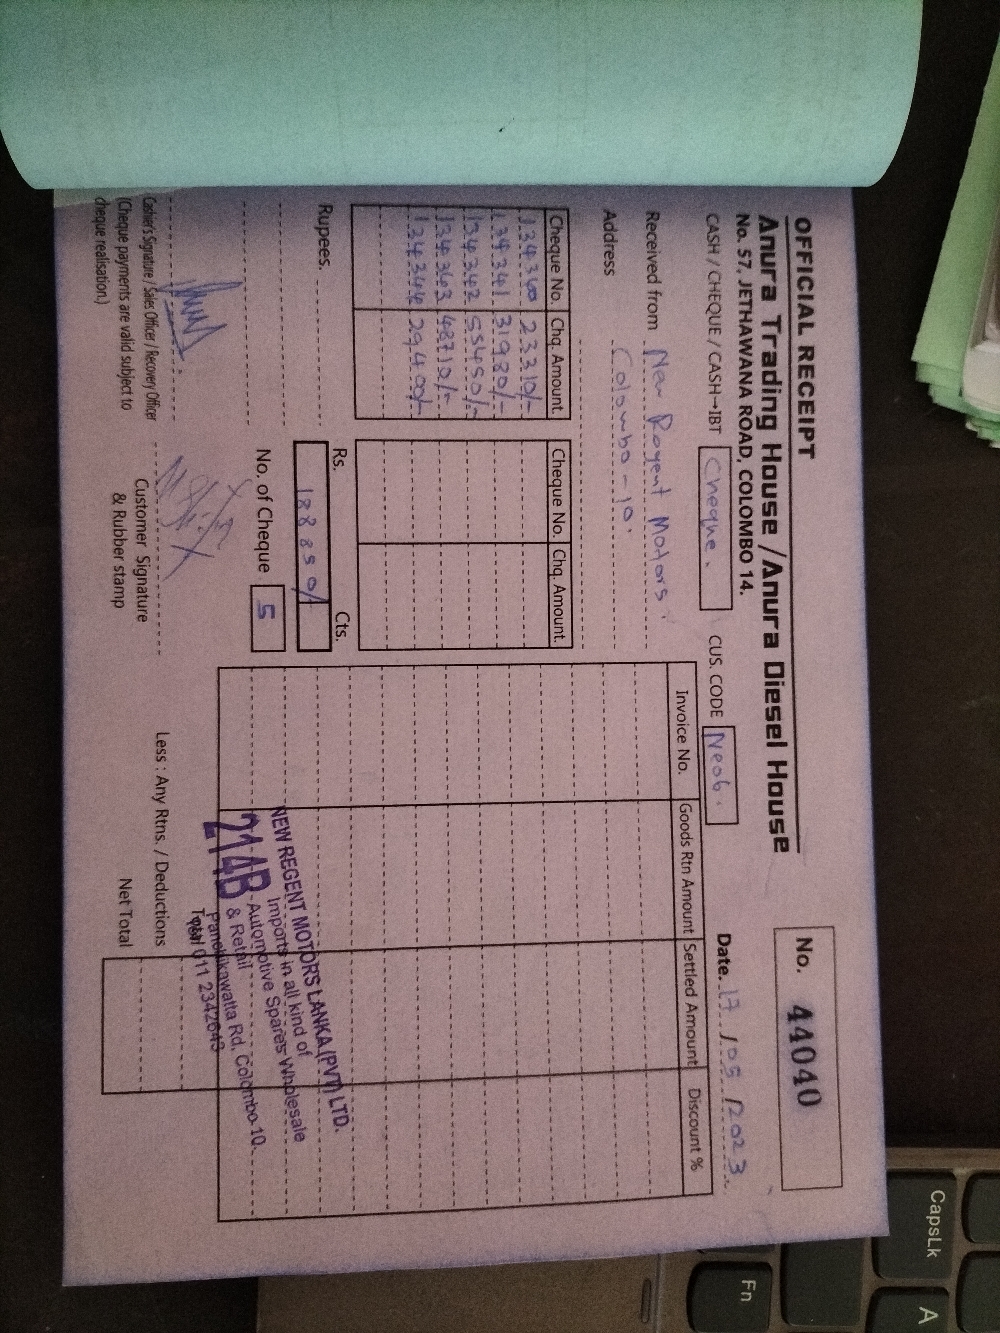 OFFICIAL RECEIPT
No. 44040
Anura Trading House / Anura Diesel House
No. 57, JETHAWANA ROAD, COLOMBO 14.
CASH / CHEQUE / CASH→IBT Cheque. CUS. CODE Ne06. Date. 17/05/2023.
Received from New Regent Motors.
Address Colombo-10.
Cheque No. Chq. Amount. Cheque No. Chq. Amount.
23310/-
134341 31980/-
134342 55450/-
134343 48710/-
134344 29400/-
Invoice No. Goods Rtn Amount Settled Amount Discount %
Rupees.
Rs. Cts.
188850/
No. of Cheque 5
NEW REGENT MOTORS LANKA (PVT) LTD.
Imports in all kind of
Automotive Spares Wholesale
& Retail
214B Panchikawatta Rd, Colombo-10.
011 2342643
Total
Less : Any Rtns. / Deductions
Net Total
Cashier's Signature / Sales Officer / Recovery Officer
(Cheque payments are valid subject to
cheque realisation.)
Customer Signature
& Rubber stamp
CapsLk
A
Fn